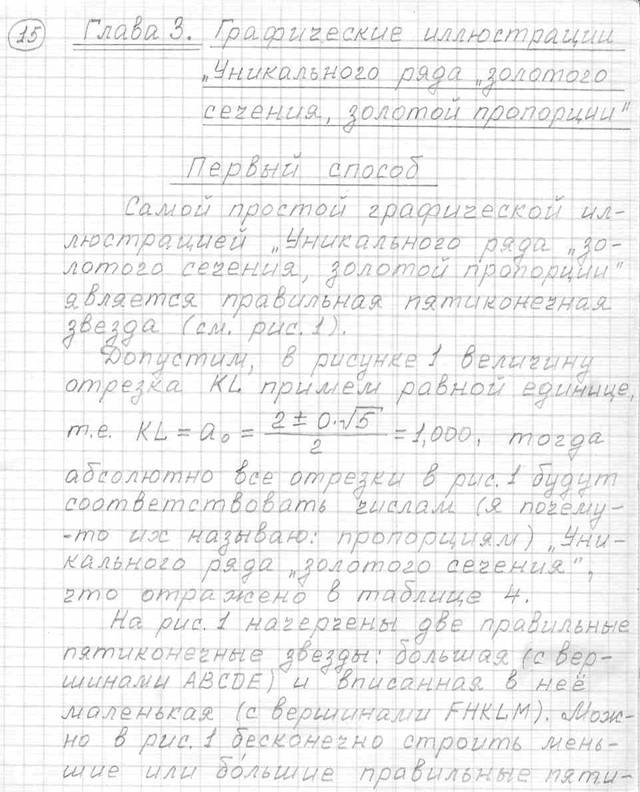 15 Глава 3. Графические иллюстрации
„Уникального ряда „золотого
сечения, золотой пропорции"
Первый способ
Самой простой графической ил-
люстрацией „Уникального ряда „зо-
лотого сечения, золотой пропорции"
является правильная пятиконечная
звезда (см. рис. 1).
Допустим, в рисунке 1 величину
отрезка KL примем равной единице,
т.е. KL = a₀ = (2 ± 0·√5)/2 = 1,000, тогда
абсолютно все отрезки в рис. 1 будут
соответствовать числам (я почему-
-то их называю: пропорциям) „Уни-
кального ряда „золотого сечения",
что отражено в таблице 4.
На рис. 1 начерчены две правильные
пятиконечные звезды: бо́льшая (с вер-
шинами ABCDE) и вписанная в неё
маленькая (с вершинами FHKLM). Мож-
но в рис. 1 бесконечно строить мень-
шие или бо́льшие правильные пяти-